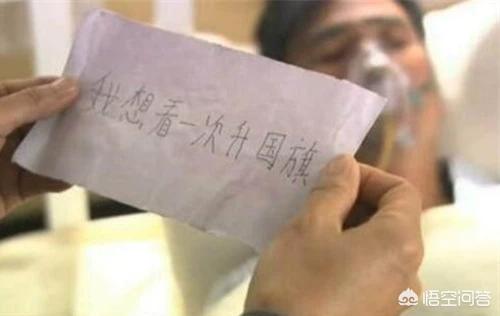 我想看一次升国旗
悟空问答